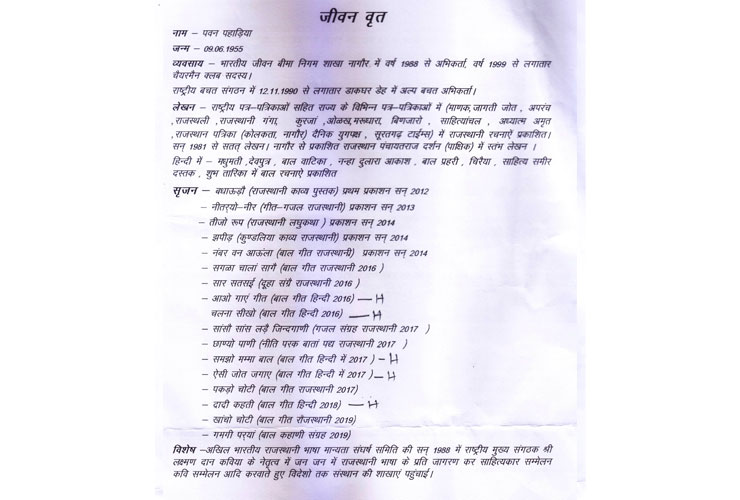 जीवन वृत
नाम – पवन पहाड़िया
जन्म – 09.06.1955
व्यवसाय – भारतीय जीवन बीमा निगम शाखा नागौर में वर्ष 1988 से अभिकर्ता, वर्ष 1999 से लगातार
चैयरमैन क्लब सदस्य।
राष्ट्रीय बचत संगठन में 12.11.1990 से लगातार डाकघर डेह में अल्प बचत अभिकर्ता।
लेखन – राष्ट्रीय पत्र–पत्रिकाओं सहित राज्य के विभिन्न पत्र–पत्रिकाओं में (माणक,जागती जोत , अपरंच
,राजस्थली ,राजस्थानी गंगा, कुरजां ,ओळख,मरूधारा, बिणजारो , साहित्यांचल , अध्यात्म अमृत
,राजस्थान पत्रिका (कोलकता, नागौर) दैनिक युगपक्ष , सूरतगढ़ टाईम्स) में राजस्थानी रचनाऐं प्रकाशित।
सन् 1981 से सतत् लेखन। नागौर से प्रकाशित राजस्थान पंचायतराज दर्शन (पाक्षिक) में स्तंभ लेखन ।
हिन्दी में – मधुमती ,देवपुत्र , बाल वाटिका , नन्हा दुलारा आकाश , बाल प्रहरी , चिरैया , साहित्य समीर
दस्तक , शुभ तारिका में बाल रचनाऐ प्रकाशित
सृजन – बधाऊड़ौ (राजस्थानी काव्य पुस्तक) प्रथम प्रकाशन सन् 2012
– नीतर्‌यो–नीर (गीत–गजल राजस्थानी) प्रकाशन सन् 2013
– तीजो रूप (राजस्थानी लघुकथा ) प्रकाशन सन् 2014
– झपीड़ (कुण्डलिया काव्य राजस्थानी) प्रकाशन सन् 2014
– नंबर वन आऊंला (बाल गीत राजस्थानी) प्रकाशन सन् 2014
– सगळा चालां सागै (बाल गीत राजस्थानी 2016 )
– सार सतसई (दूहा संग्रै राजस्थानी 2016 )
– आओ गाएं गीत (बाल गीत हिन्दी 2016) — H
चलना सीखो (बाल गीत हिन्दी 2016) — H
– सांसौ सांस लड़ै जिन्दगाणी (गजल संग्रह राजस्थानी 2017 )
– छाण्यो पाणी (नीति परक बातां पद्य राजस्थानी 2017 )
– समझो मम्मा बाल (बाल गीत हिन्दी में 2017 ) – H
– ऐसी जोत जगाए (बाल गीत हिन्दी में 2017 ) – H
– पकड़ो चोटी (बाल गीत राजस्थानी 2017)
– दादी कहती (बाल गीत हिन्दी 2018) — H
– खांचो चोटी (बाल गीत राजस्थानी 2019)
– गमगी पर्‌यां (बाल कहाणी संग्रह 2019)
विशेष –अखिल भारतीय राजस्थानी भाषा मान्यता संघर्ष समिति की सन् 1988 में राष्ट्रीय मुख्य संगठक श्री
लक्ष्मण दान कविया के नेतृत्व में जन जन में राजस्थानी भाषा के प्रति जागरण कर साहित्यकार सम्मेलन
कवि सम्मेलन आदि करवाते हुए विदेशो तक संस्थान की शाखाएं पहुंचाई।